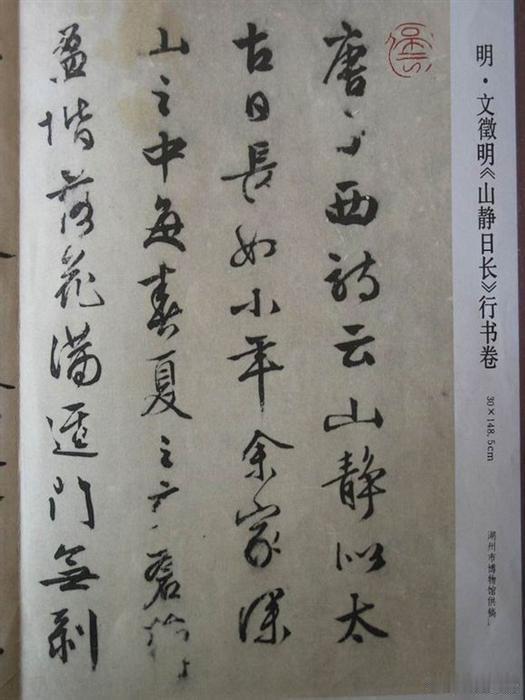 明·文徵明《山静日长》行书卷
30×148.5cm
湖州市博物馆供稿
唐西詩云山静似太
古日長如小年余家深
山之中每春夏之交蒼
盈堦落花滿逕門無剥